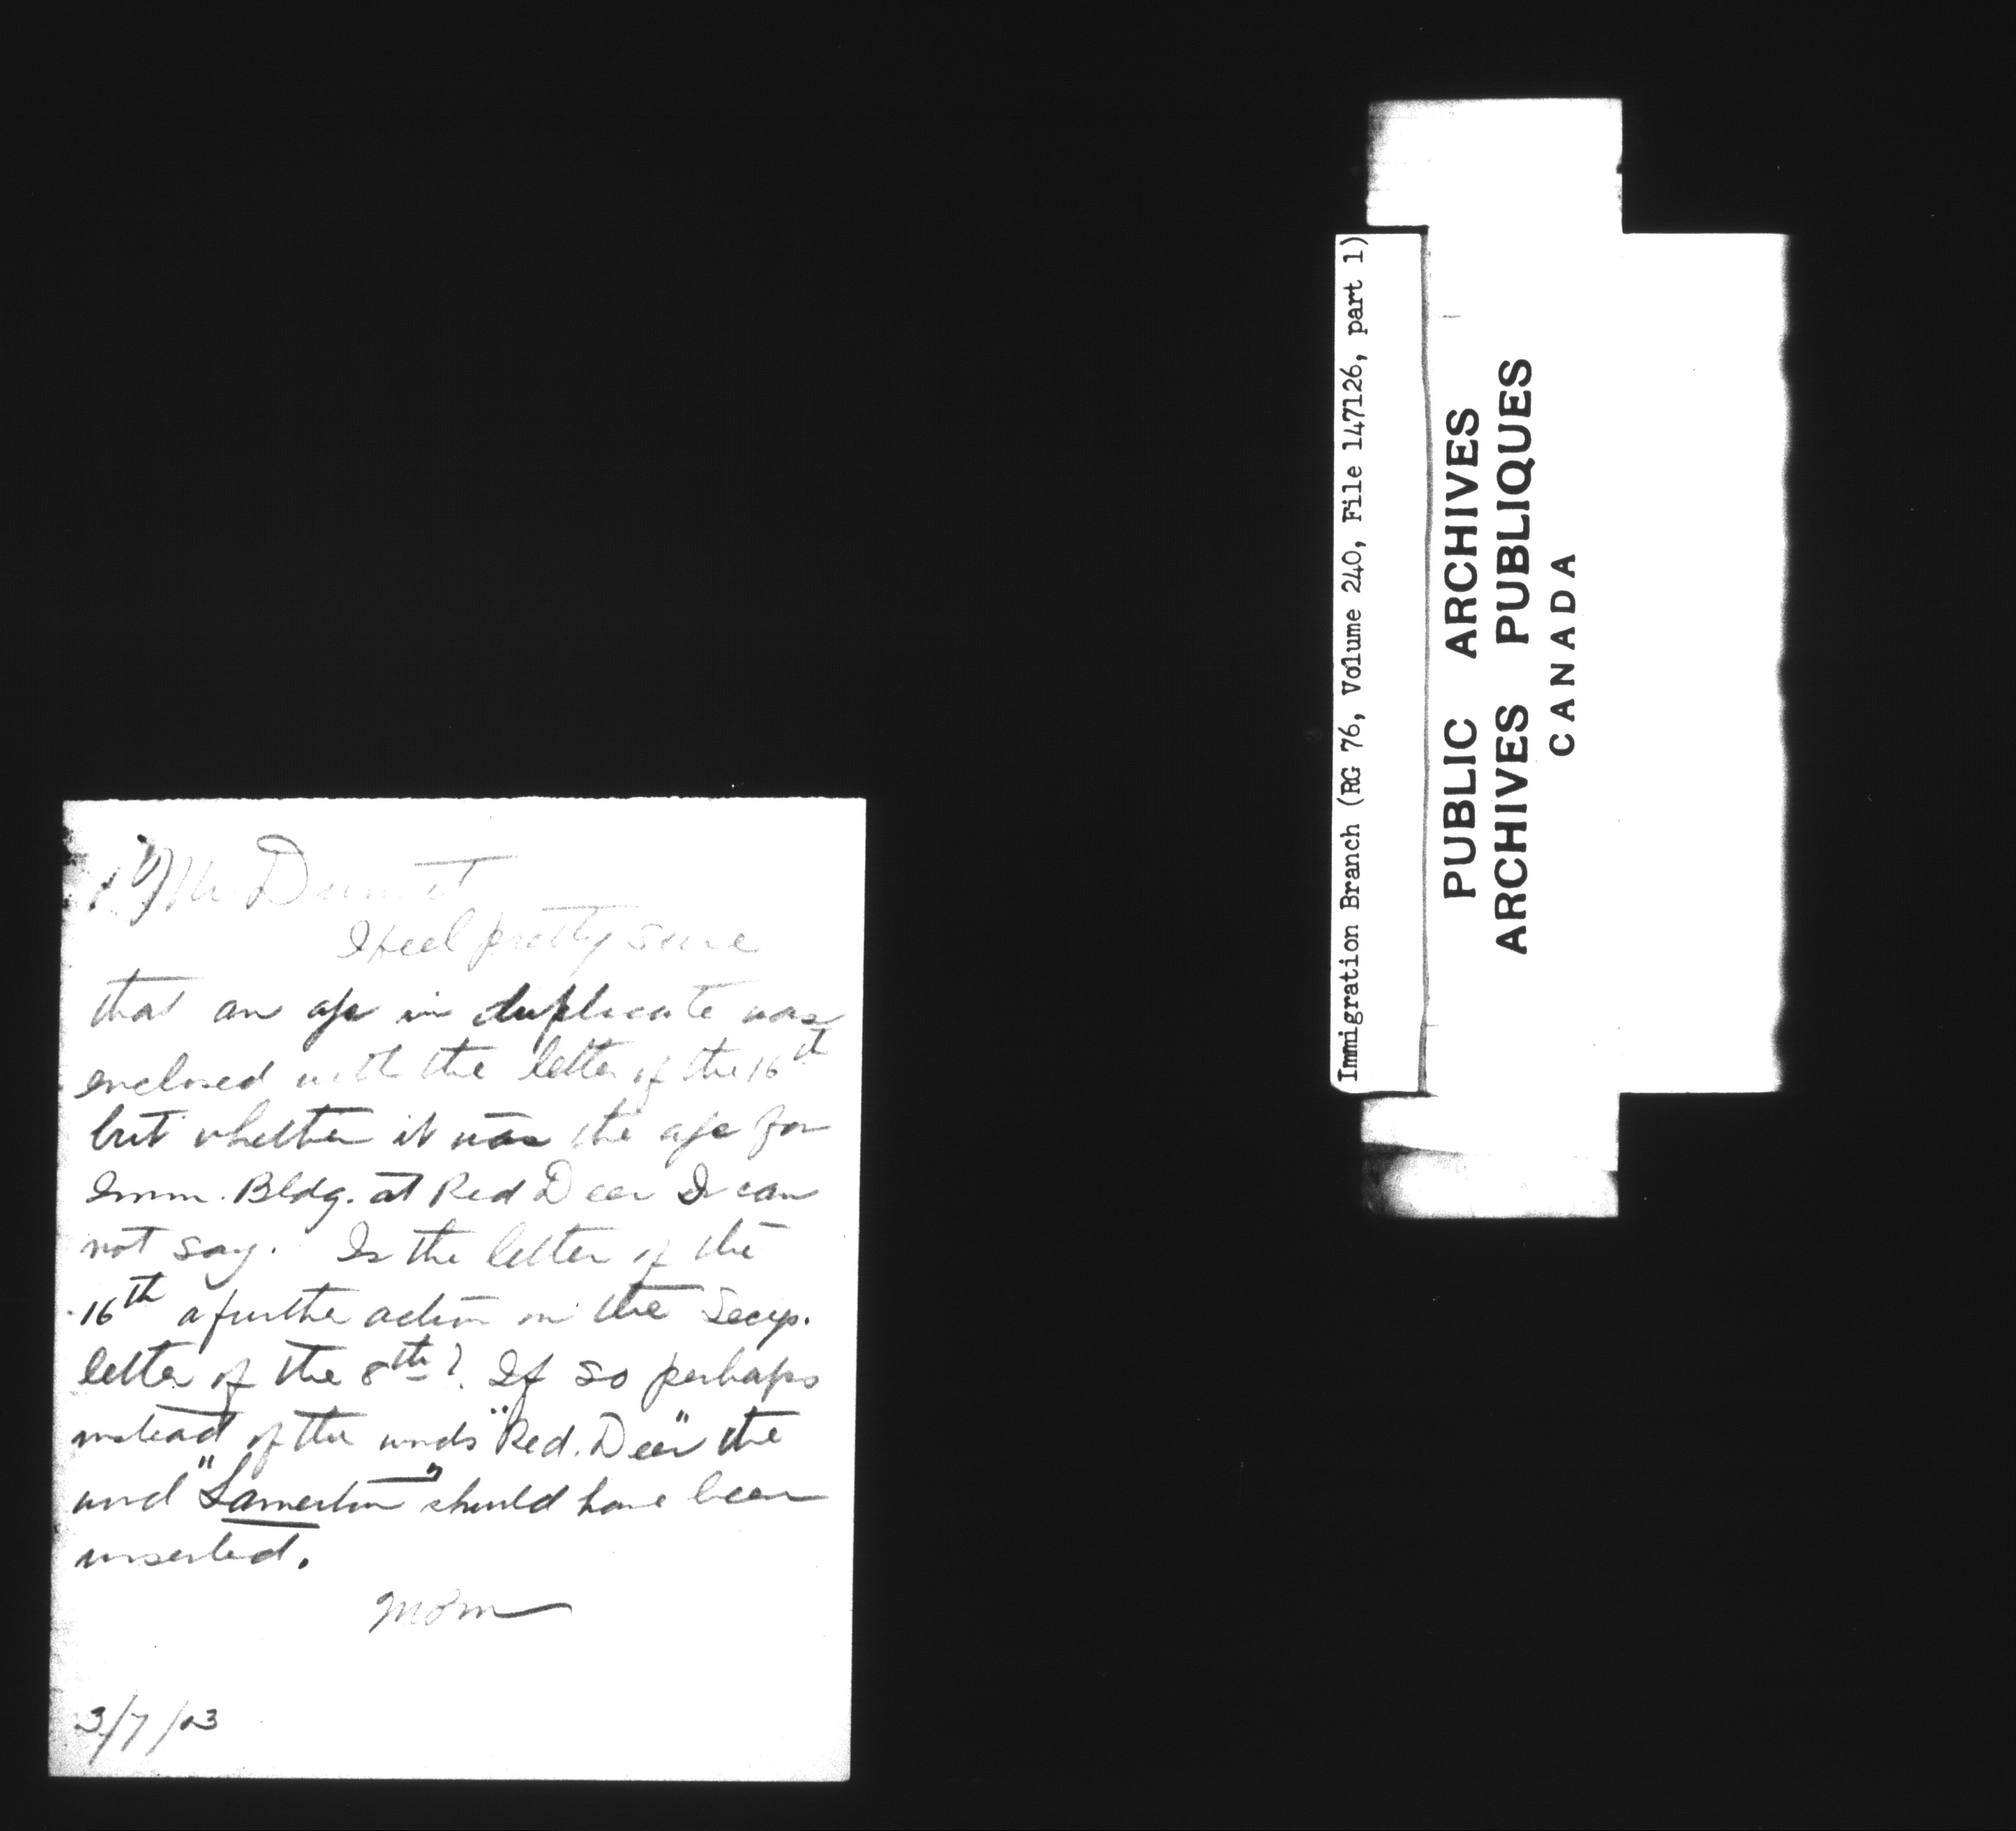 Mr
I feel pretty sure
that an a/c in duplicate was
enclosed with the letter of the 16th
but whether it was the a/c for
Imm. Bldg. at Red Deer I can
not say. Is the letter of the
16th a further action on the Secys.
letter of the 8th? If so perhaps
instead of the words "Red. Deer" the
word "Lamerton" should have been
inserted.
3/7/03
Immigration Branch (RG 76, Volume 240, File 147126, part 1)
PUBLIC ARCHIVES
ARCHIVES PUBLIQUES
CANADA